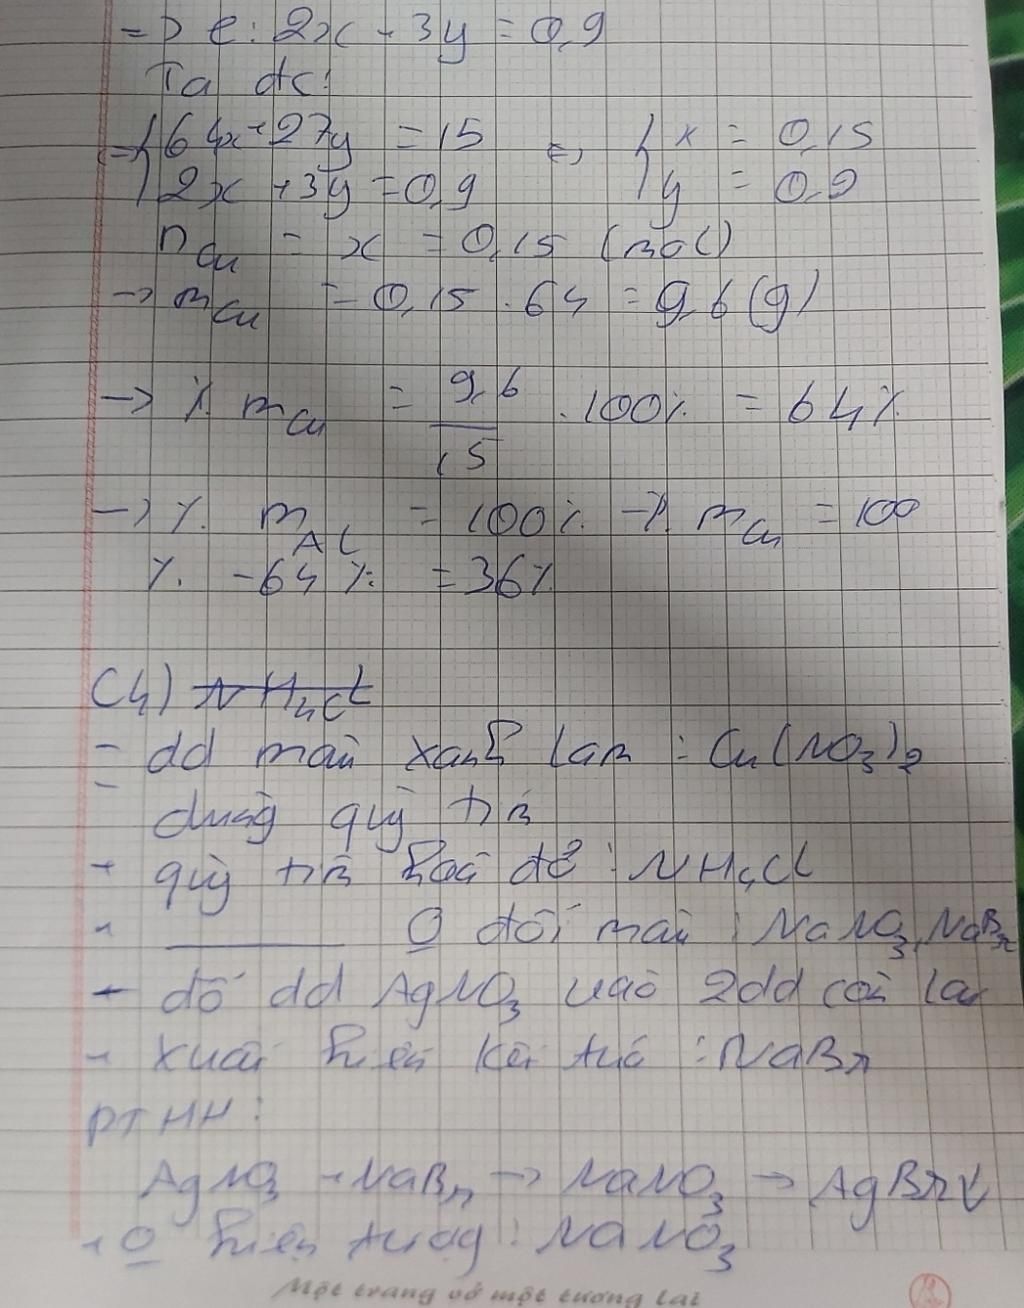 => e: 2x + 3y = 0,9
Ta dc:
<=> { 64x + 27y = 15 <=> { x = 0,15
2x + 3y = 0,9 y = 0,2
nCu = x = 0,15 (mol)
-> mCu = 0,15 . 64 = 9,6 (g)
-> % mCu = 9,6/15 . 100% = 64%
-> % mAl = 100% - % mCu = 100
% - 64% = 36%
C4) NH4Cl
- dd màu xanh lam : Cu(NO3)2
- dùng quỳ tím
+ quỳ tím hoá đỏ : NH4Cl
+ ______ 0 đổi màu : NaNO3, NaBr
- đổ dd AgNO3 vào 2dd còn lại
+ xuất hiện kết tủa : NaBr
PTHH :
AgNO3 + NaBr -> NaNO3 + AgBr↓
+ 0 hiện tượng : NaNO3
Một trang vở một tương lai